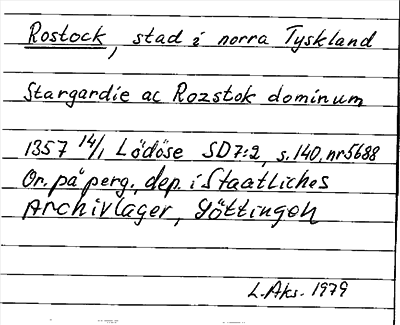 Rostock, stad i norra Tyskland
Stargardie ac Rozstok dominum
1357 14/1 Lödöse SD7:2, s.140, nr5688
Or. på perg., dep. i Staatliches
Archivlager, Göttingen
L.Aks. 1979